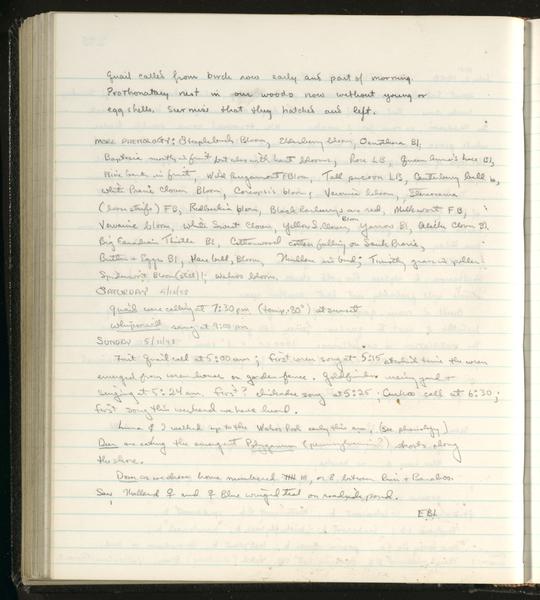 Quail called from birch now early and part of morning.
Prothonotary nest in our woods now without young or
egg shells. Surmise that they hatched and left.
MORE PHENOLOGY: Bloom, Elderberry bloom, Oenothera Bl,
Baptisia mostly in fruit but also with last blooms, Rose LB, Queen Anne's lace Bl,
Nine bark in fruit, Wild Bergamot FBloom, Tall LB, Canterbury bell
White Prairie Clover Bloom, Coreopsis bloom, Veronica bloom,
(loosestrife) FB, in bloom, Black are red, Milkwort FB,
Vervaine bloom, White Sweet Clover, Yellow S. Clover Bloom, Yarrow Bl, Alsike Clover Bl
Big Canadian Thistle Bl, Cottonwood cotton falling on Sauk Prairie,
Butter & Eggs Bl, Hare bell, Bloom, Mullein in bud; Timothy grass in pollen
Spiderwort Bloom (still)!; Wahoo bloom.
SATURDAY
Quail were calling at 7:30 pm (temp. 80°) at sunset
Whipporwill sang at 9:00 pm.
SUNDAY
First Quail call at 5:00 am; first wren song at 5:15 at which time the wren
emerged from wren house on garden fence. Goldfinch using yard +
singing at 5:24 am. First? chickadee song at 5:25; Cuckoo call at 6:30;
first song this weekend we have heard.
I walked up to the Wahoo early this am. (See phenology)
Deer are eating the emergent Polygonum (pennsylvanicum?) shoots along
the shore.
Doves as we drove home numbered or 8 between + Baraboo.
Saw Mallard ♀ and ♀ Blue winged teal on roadside pond.